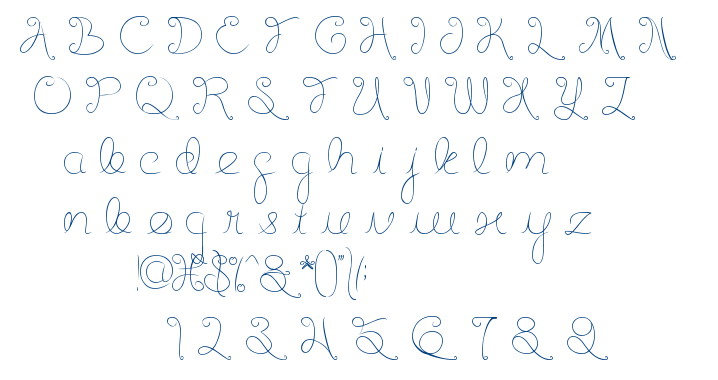 A B C D E F G H I J K L M N
O P Q R S T U V W X Y Z
a b c d e f g h i j k l m
n o p q r s t u v w x y z
!@#$%^&*()"'\(;
1 2 3 4 5 6 7 8 9